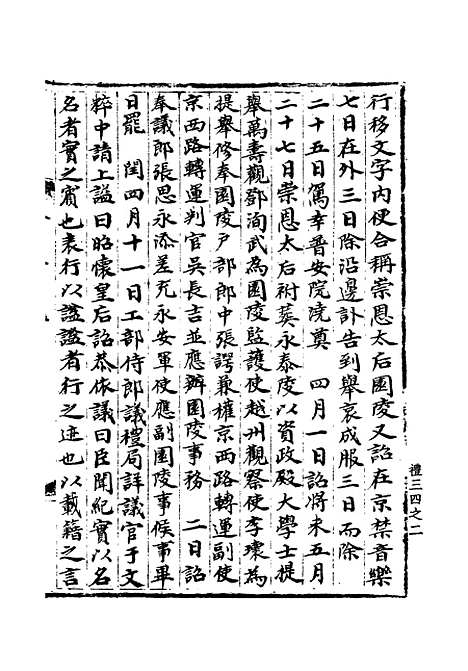 行移文字內使合稱崇恩太后園陵又詔在京禁音樂
七日在外三日除沿邊訃告到舉哀成服三日而除
二十五日駕幸普安院奠　四月一日詔將來五月
二十七日崇恩太后祔葬永泰陵以資政殿大學士提
舉萬壽觀鄧洵武為園陵監護使越州觀察使李瓌為
提舉修奉園陵戶部郎中張諤兼權京西路轉運副使
京西路轉運判官吳長吉並應辦園陵事務　二日詔
奉議郎張思永添差充永安軍使應副園陵事候事畢
日罷　閏四月十一日工部侍郎議禮局詳議官于文
粹中請上謚曰昭懷皇后詔恭依議曰臣聞紀實以名
名者實之賓也表行以謚謚者行之迹也以載籍之言
禮三四之二